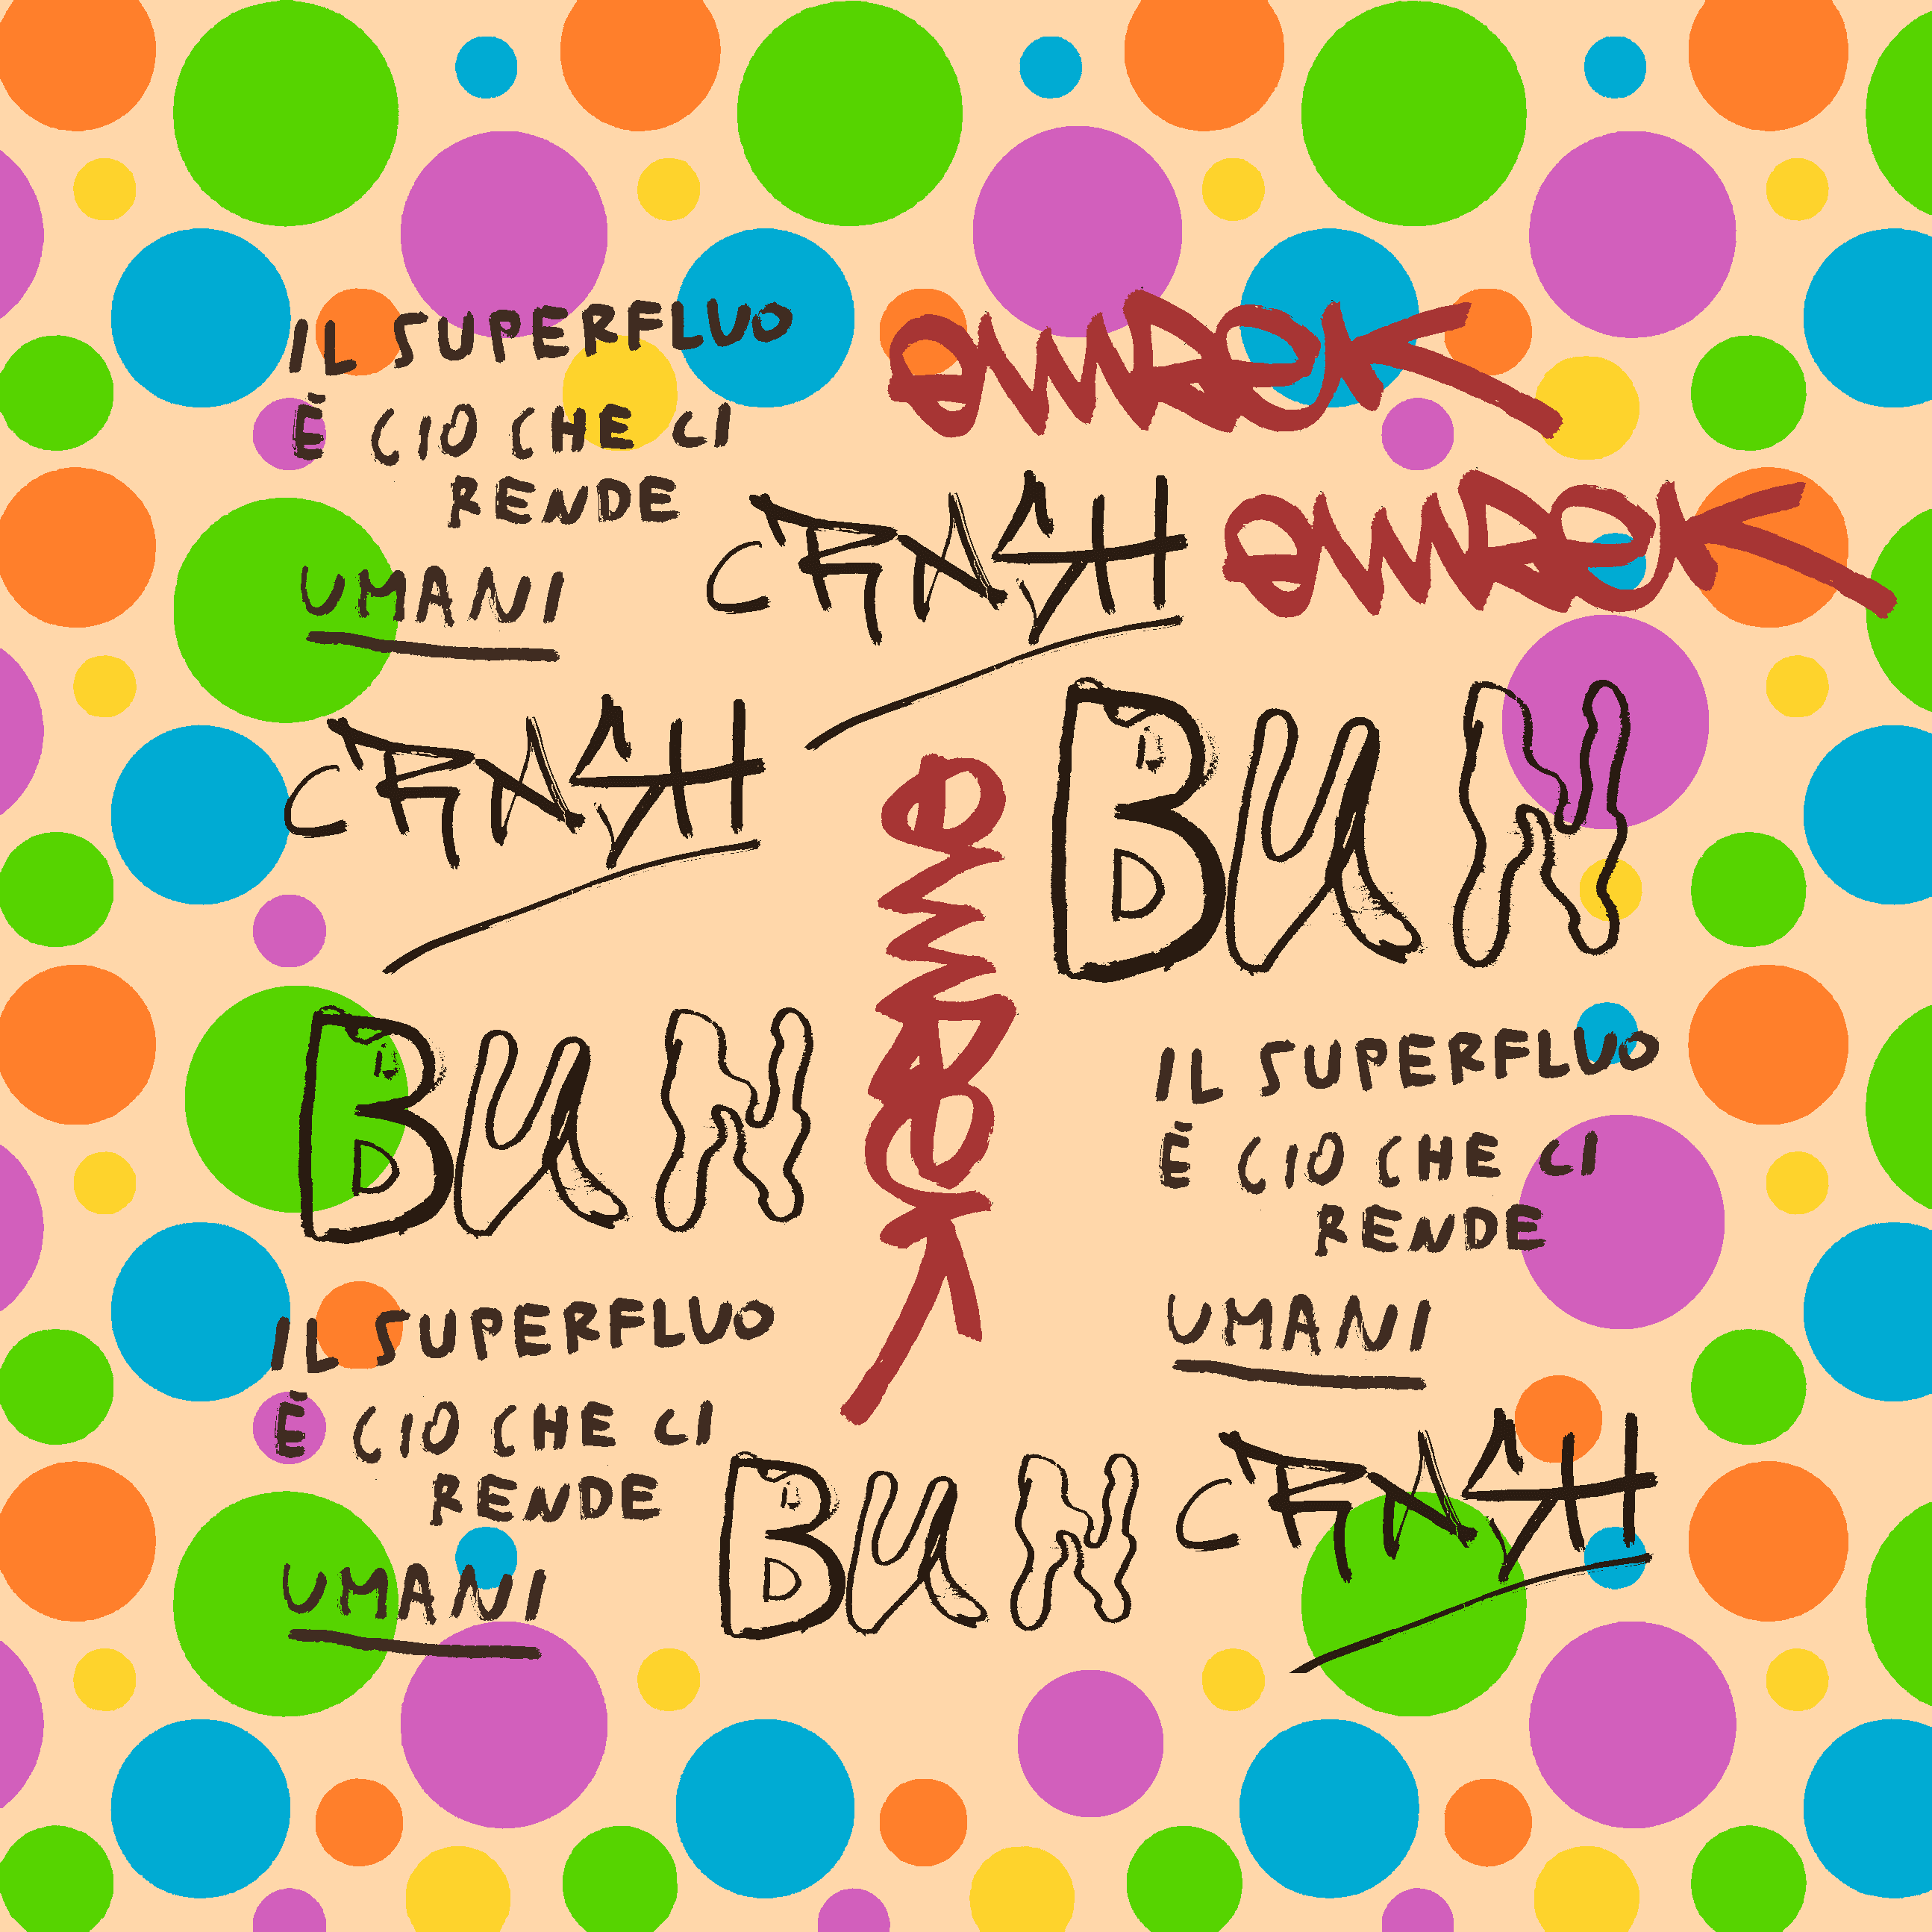 IL SUPERFLUO
È CIO CHE CI
RENDE
UMANI
CRASH
CRASH
BUN
BUN
IL SUPERFLUO
È CIO CHE CI
RENDE
UMANI
IL SUPERFLUO
È CIO CHE CI
RENDE
UMANI
BUN
CRASH